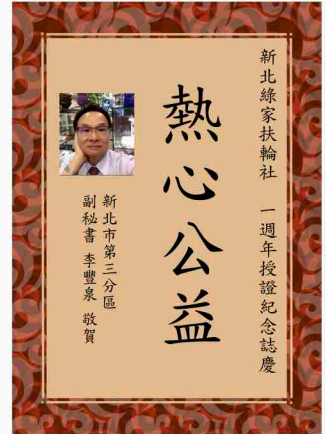 新北綠家扶輪社　一週年授證紀念誌慶
熱心公益
新北市第三分區
副秘書 李豐泉 敬賀